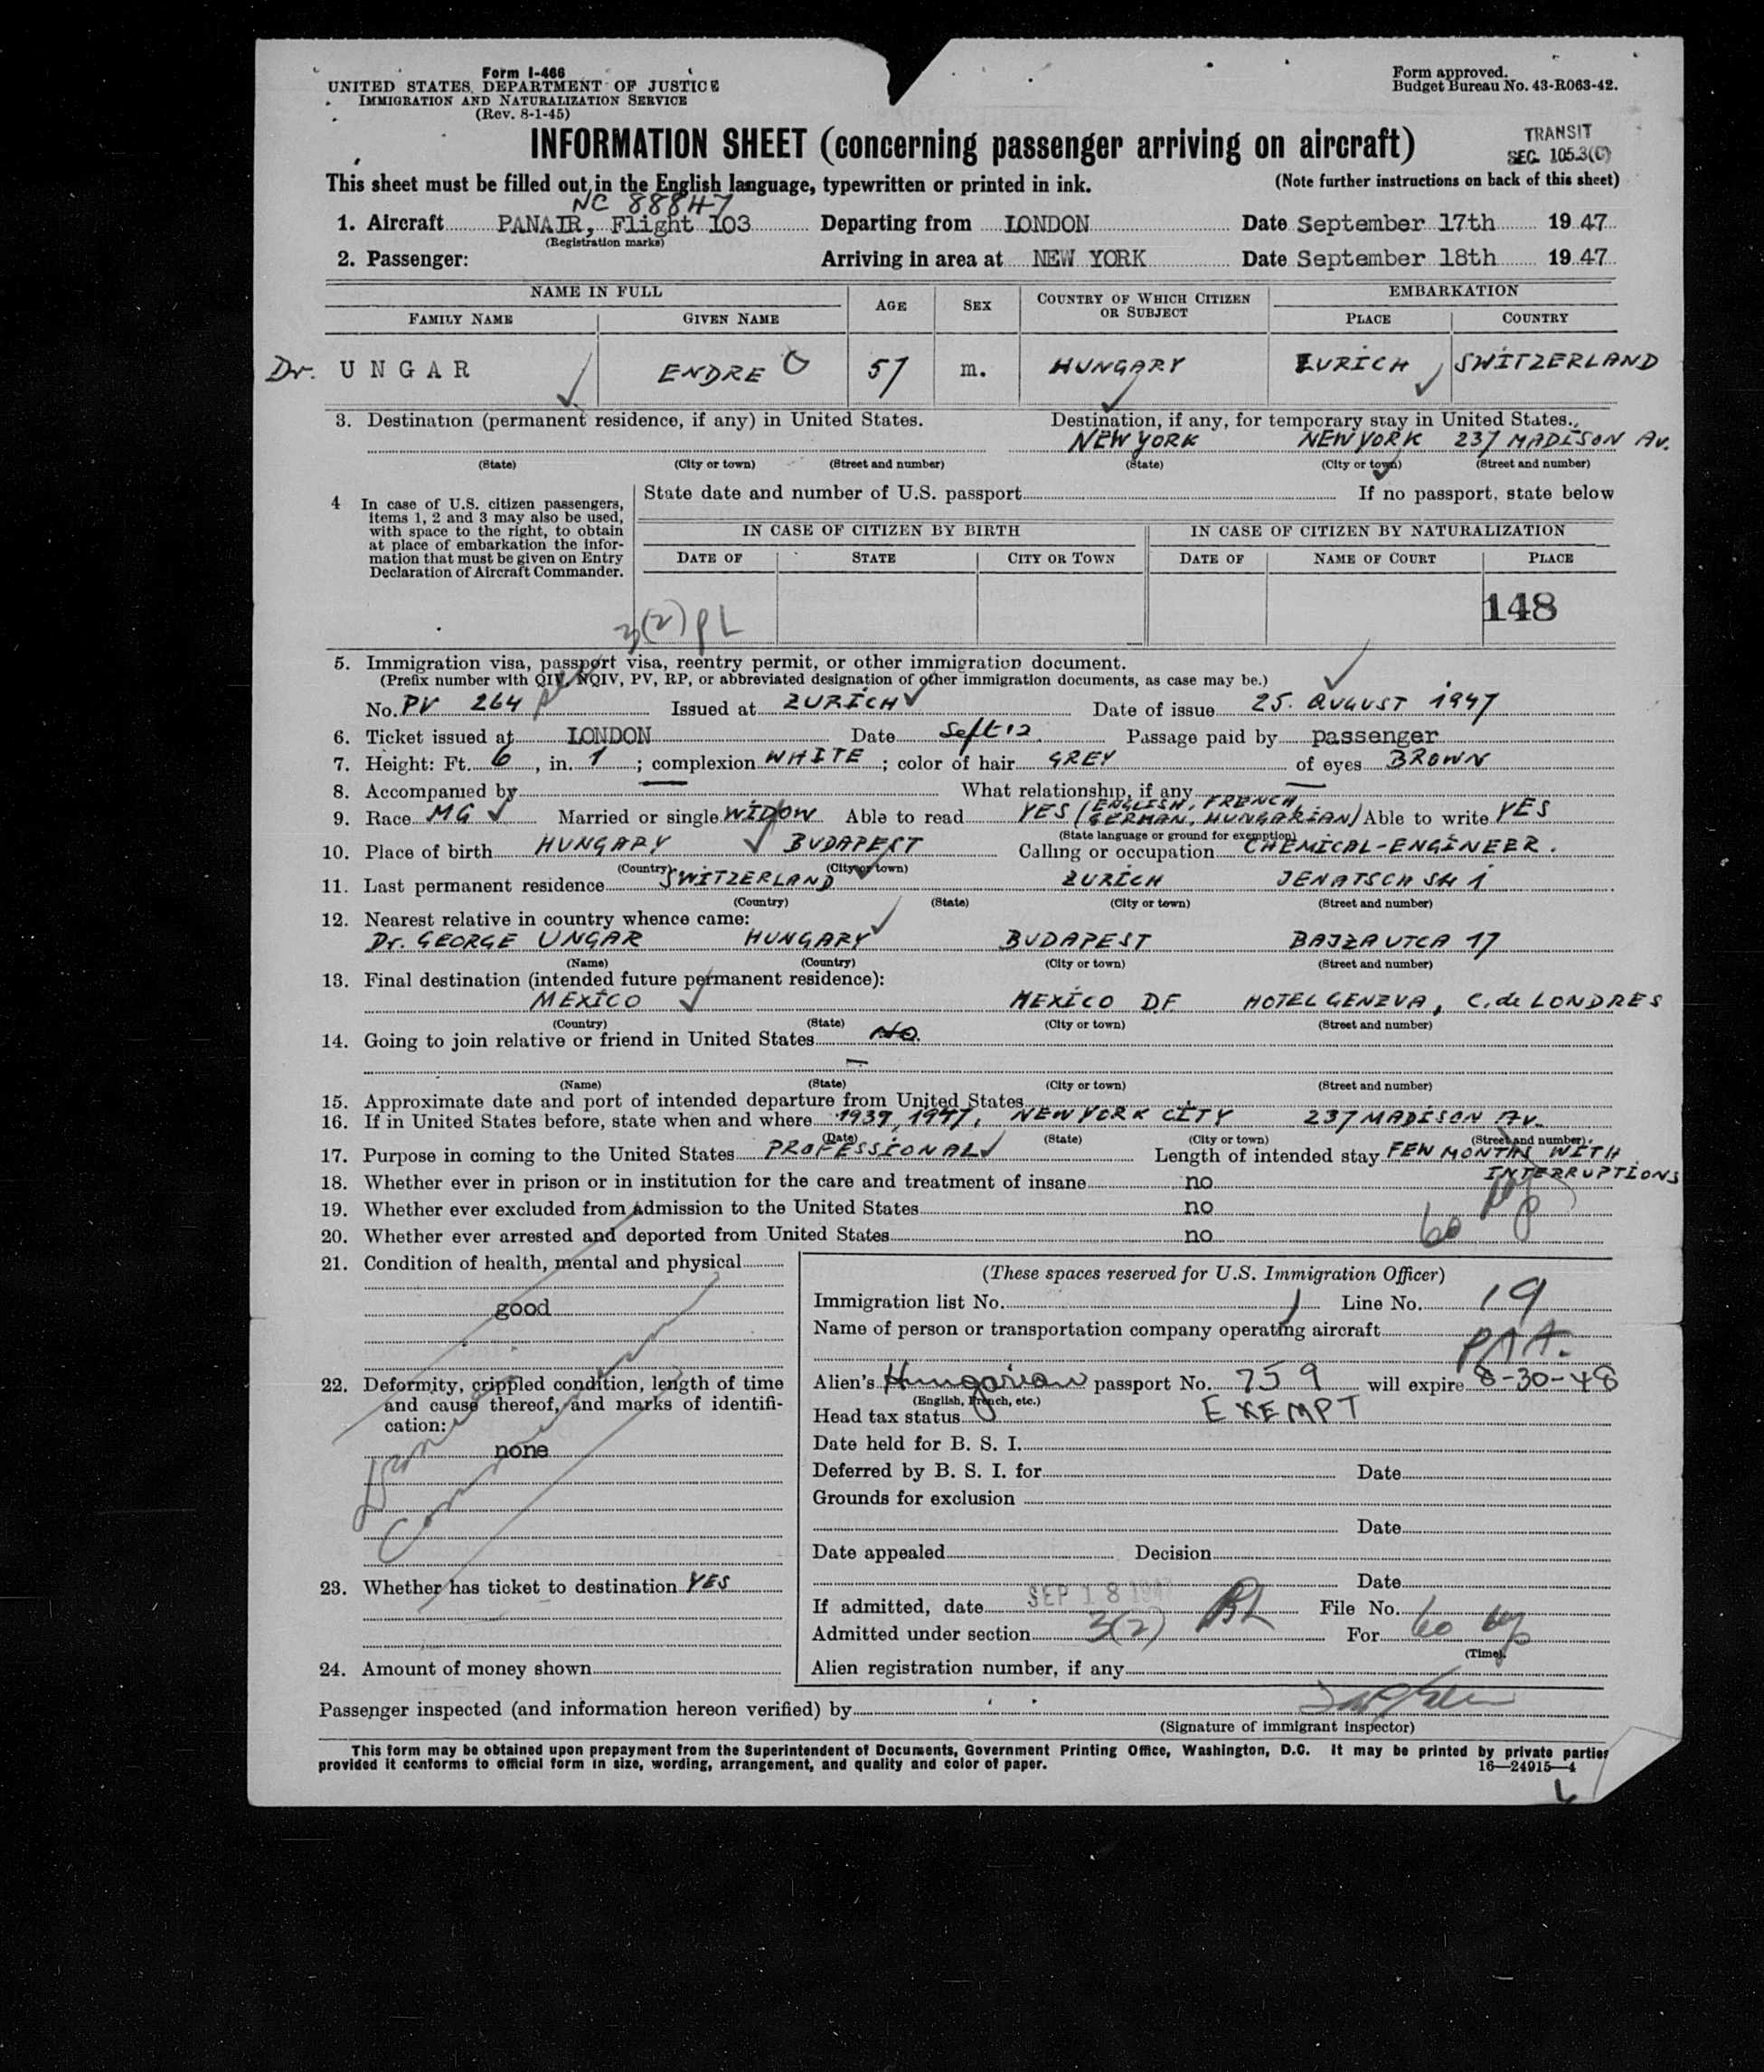 Form I-466
UNITED STATES DEPARTMENT OF JUSTICE
IMMIGRATION AND NATURALIZATION SERVICE
(Rev. 8-1-45)
Form approved.
Budget Bureau No. 43-R063-42.
INFORMATION SHEET (concerning passenger arriving on aircraft)
TRANSIT
SEC. 105.3(C)
This sheet must be filled out in the English language, typewritten or printed in ink. (Note further instructions on back of this sheet)
NC 88847
1. Aircraft PANAIR, Flight 103 Departing from LONDON Date September 17th 1947
(Registration marks)
2. Passenger: Arriving in area at NEW YORK Date September 18th 1947
NAME IN FULL AGE SEX COUNTRY OF WHICH CITIZEN OR SUBJECT EMBARKATION
FAMILY NAME GIVEN NAME PLACE COUNTRY
Dr. UNGAR ENDRE 57 m. HUNGARY ZURICH SWITZERLAND
3. Destination (permanent residence, if any) in United States. Destination, if any, for temporary stay in United States.
NEW YORK NEW YORK 237 MADISON Av.
(State) (City or town) (Street and number) (State) (City or town) (Street and number)
4 In case of U.S. citizen passengers, items 1, 2 and 3 may also be used, with space to the right, to obtain at place of embarkation the information that must be given on Entry Declaration of Aircraft Commander.
State date and number of U.S. passport If no passport, state below
IN CASE OF CITIZEN BY BIRTH IN CASE OF CITIZEN BY NATURALIZATION
DATE OF STATE CITY OR TOWN DATE OF NAME OF COURT PLACE
148
3(2) PL
5. Immigration visa, passport visa, reentry permit, or other immigration document.
(Prefix number with QIV, NQIV, PV, RP, or abbreviated designation of other immigration documents, as case may be.)
No. PV 264 Issued at ZURICH Date of issue 25. AUGUST 1947
6. Ticket issued at LONDON Date Sept 12. Passage paid by passenger
7. Height: Ft. 6, in. 1; complexion WHITE; color of hair GREY of eyes BROWN
8. Accompanied by — What relationship, if any —
9. Race MG Married or single WIDOW Able to read YES (ENGLISH, FRENCH, GERMAN, HUNGARIAN) Able to write YES
(State language or ground for exemption)
10. Place of birth HUNGARY BUDAPEST Calling or occupation CHEMICAL-ENGINEER.
(Country) (City or town)
11. Last permanent residence SWITZERLAND ZURICH JENATSCH str 1
(Country) (State) (City or town) (Street and number)
12. Nearest relative in country whence came:
Dr. GEORGE UNGAR HUNGARY BUDAPEST BAJZA UTCA 17
(Name) (Country) (City or town) (Street and number)
13. Final destination (intended future permanent residence):
MEXICO MEXICO D.F. HOTEL GENEVA, C. de LONDRES
(Country) (State) (City or town) (Street and number)
14. Going to join relative or friend in United States NO.
—
(Name) (State) (City or town) (Street and number)
15. Approximate date and port of intended departure from United States
16. If in United States before, state when and where 1939, 1947, NEW YORK CITY 237 MADISON Av.
(Date) (State) (City or town) (Street and number)
17. Purpose in coming to the United States PROFESSIONAL Length of intended stay FEW MONTHS WITH
INTERRUPTIONS
18. Whether ever in prison or in institution for the care and treatment of insane no
19. Whether ever excluded from admission to the United States no
20. Whether ever arrested and deported from United States no
60
21. Condition of health, mental and physical
good
22. Deformity, crippled condition, length of time and cause thereof, and marks of identification:
none
23. Whether has ticket to destination YES
24. Amount of money shown
(These spaces reserved for U.S. Immigration Officer)
Immigration list No. 1 Line No. 19
Name of person or transportation company operating aircraft
PAA.
Alien's Hungarian passport No. 759 will expire 8-30-48
(English, French, etc.)
Head tax status EXEMPT
Date held for B. S. I.
Deferred by B. S. I. for Date
Grounds for exclusion
Date
Date appealed Decision
Date
If admitted, date SEP 18 1947 File No.
Admitted under section 3(2) For 60
(Time)
Alien registration number, if any
Passenger inspected (and information hereon verified) by
(Signature of immigrant inspector)
This form may be obtained upon prepayment from the Superintendent of Documents, Government Printing Office, Washington, D.C. It may be printed by private parties
provided it conforms to official form in size, wording, arrangement, and quality and color of paper. 16—24915—4